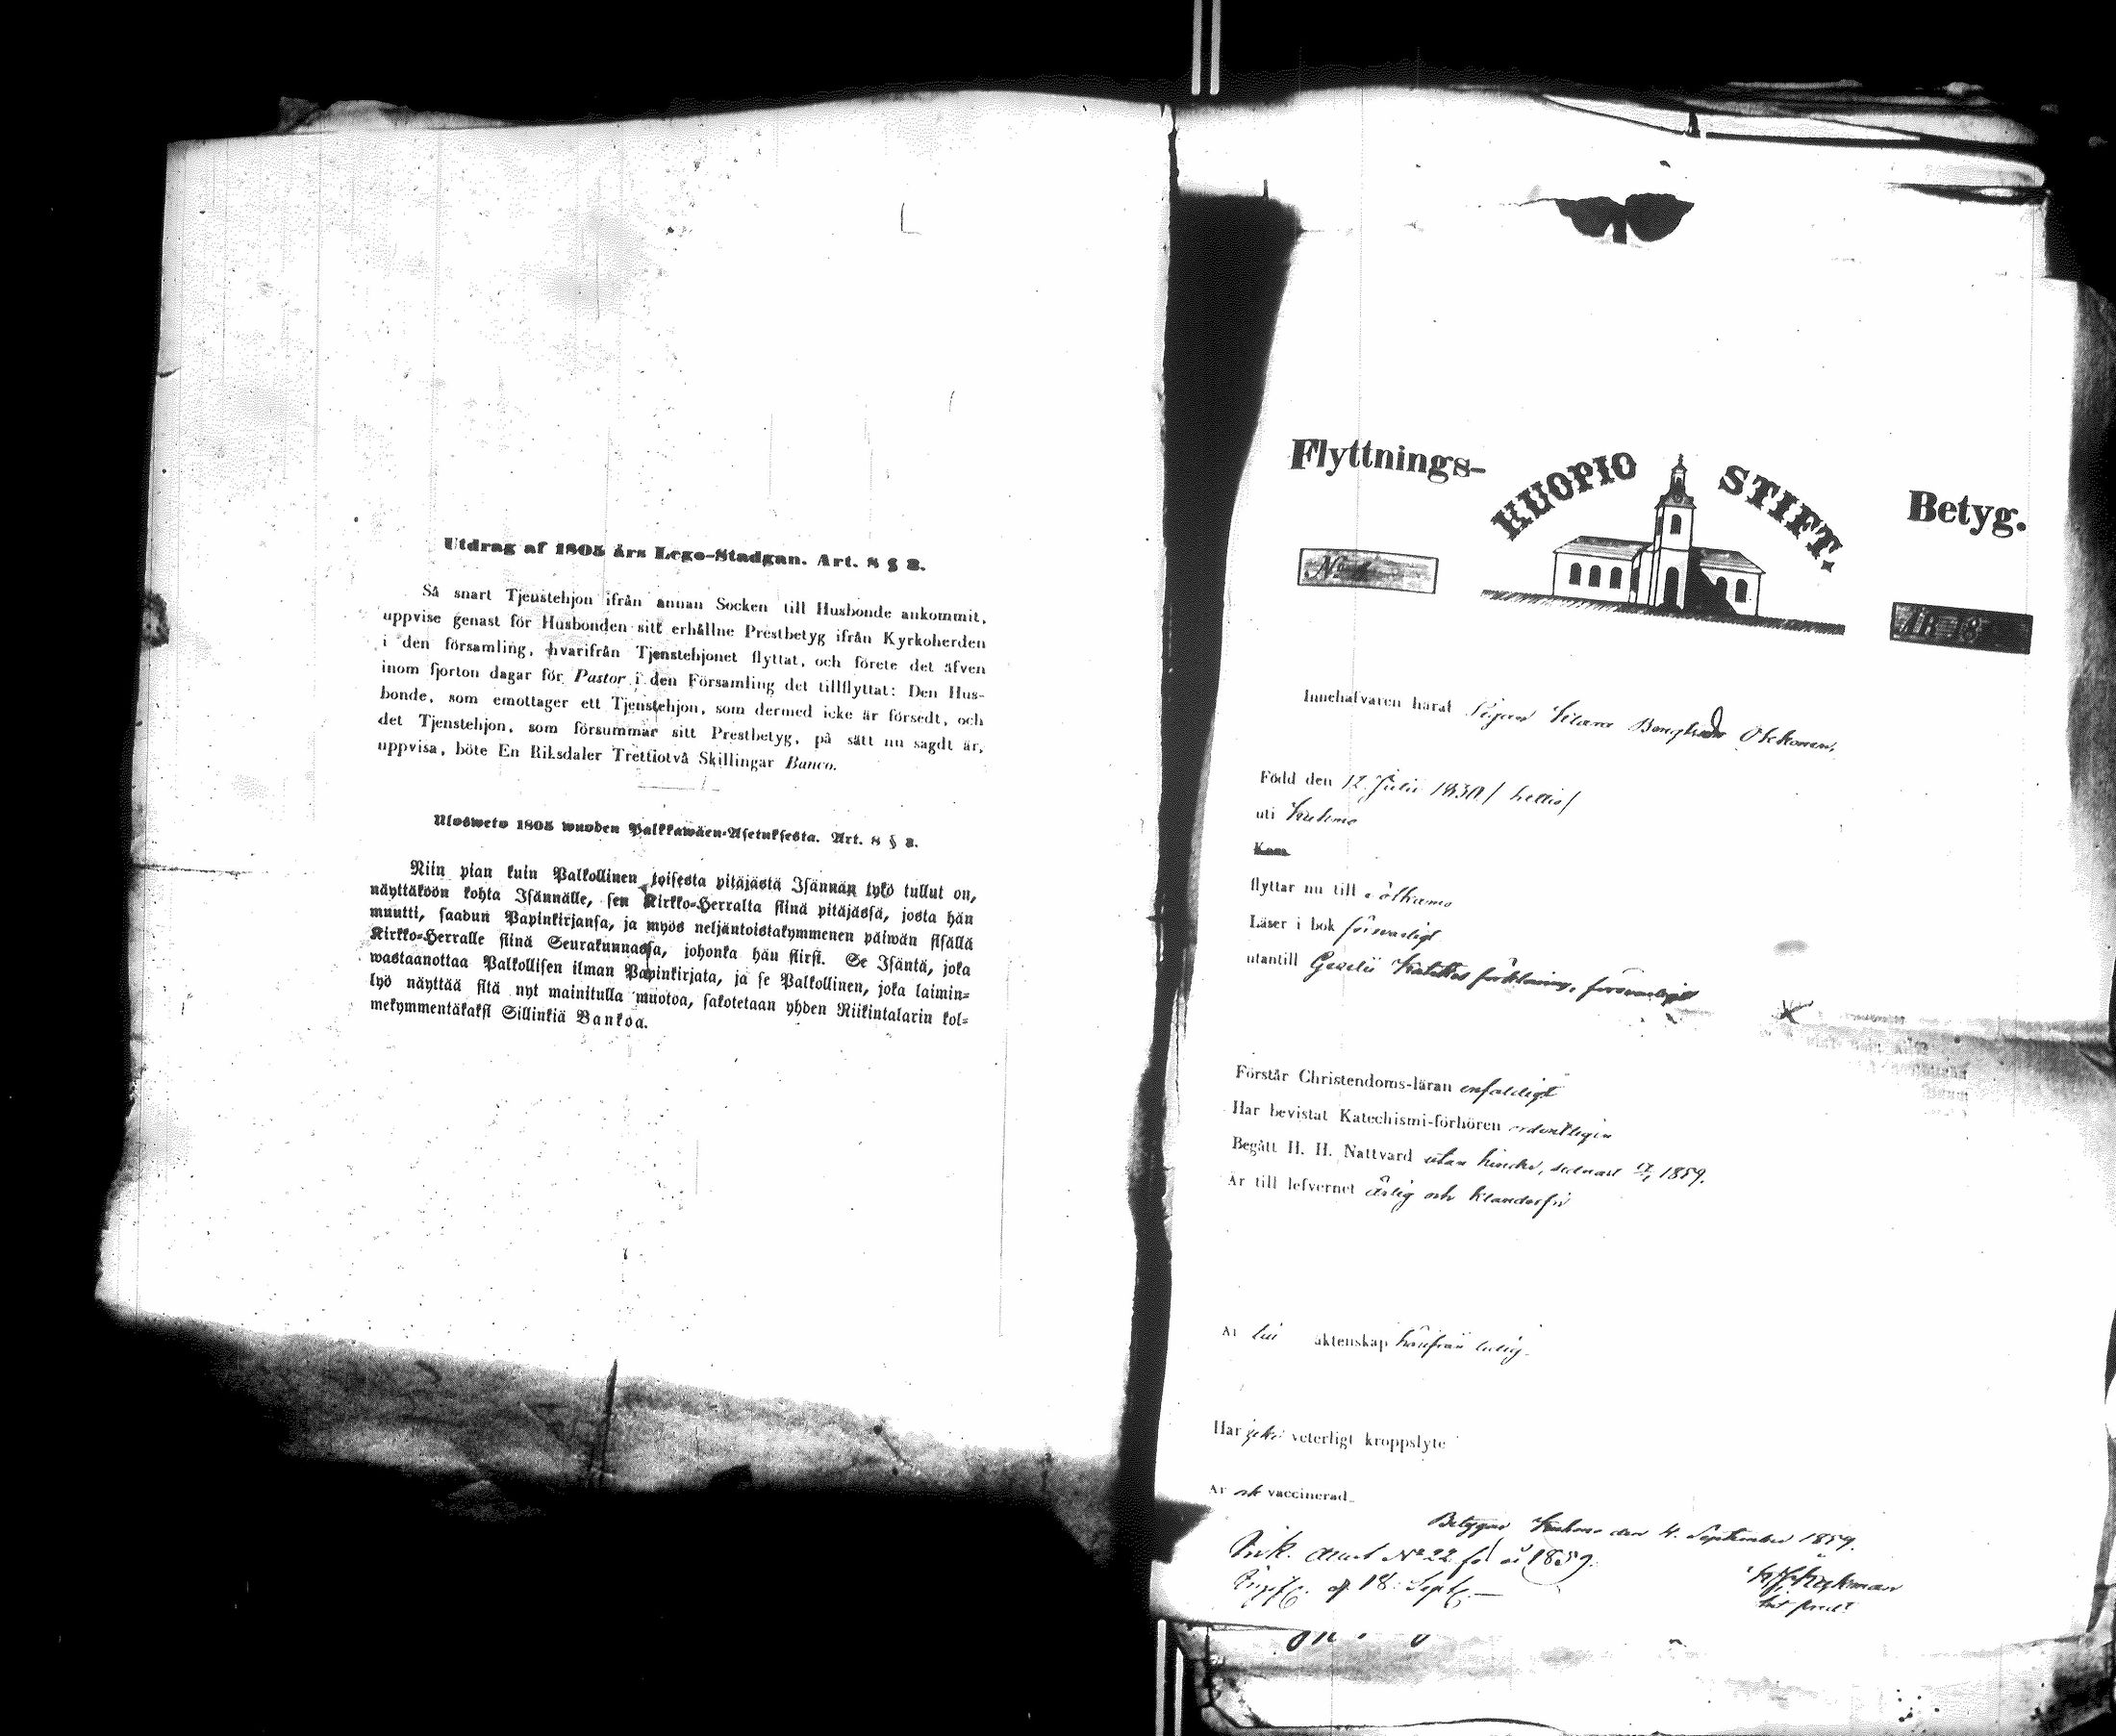 Utdrag af 1805 års Lego-Stadgan. Art. 8 § 3.
Så snart Tjenstehjon ifrån annan Socken till Husbonde ankommit,
uppvise genast för Husbonden sitt erhållne Prestbetyg ifrån Kyrkoherden
i den församling, hvarifrån Tjenstehjonet flyttat, och förete det äfven
inom fjorton dagar för Pastor i den Församling det tillflyttat: Den Hus-
bonde, som emottager ett Tjenstehjon, som dermed icke är försedt, och
det Tjenstehjon, som försummar sitt Prestbetyg, på sätt nu sagdt är,
uppvisa, böte En Riksdaler Trettiotvå Skillingar Banco.
Ulosweto 1805 wuoden Palkkawäen-Asetuksesta. Art. 8 § 3.
Niin pian kuin Palkollinen toisesta pitäjästä Isännän tykö tullut on,
näyttäköön kohta Isännälle, sen Kirkko-Herralta siinä pitäjässä, josta hän
muutti, saadun Papinkirjansa, ja myös neljäntoistakymmenen päiwän sisällä
Kirkko-Herralle siinä Seurakunnassa, johonka hän siirsi. Se Isäntä, joka
wastaanottaa Palkollisen ilman Papinkirjata, ja se Palkollinen, joka laimin-
lyö näyttää sitä nyt mainitulla muotoa, sakotetaan yhden Riikintalarin kol-
mekymmentäkaksi Sillinkiä Bankoa.
Flyttnings- KUOPIO STIFT. Betyg.
No
ÅR 18
Innehafvaren häraf Pigan Bengtsdr
Född den 12. Julii
uti Kuhmo
Kom
flyttar nu till
Läser i bok försvarligt
utantill Gezelii förklaring, försvarligt
Förstår Christendoms-läran enfaldigt
Har bevistat Katechismi-förhören ordentligen
Begått H. H. Nattvard utan hinder, senast 1859.
Är till lefvernet ärlig och klanderfri
Är till äktenskap härifrån ledig
Har icke veterligt kroppslyte
Är ock vaccinerad.
Betygar Kuhmo den 4. September 1859.
No 22 för år 1859.
18 Sept.